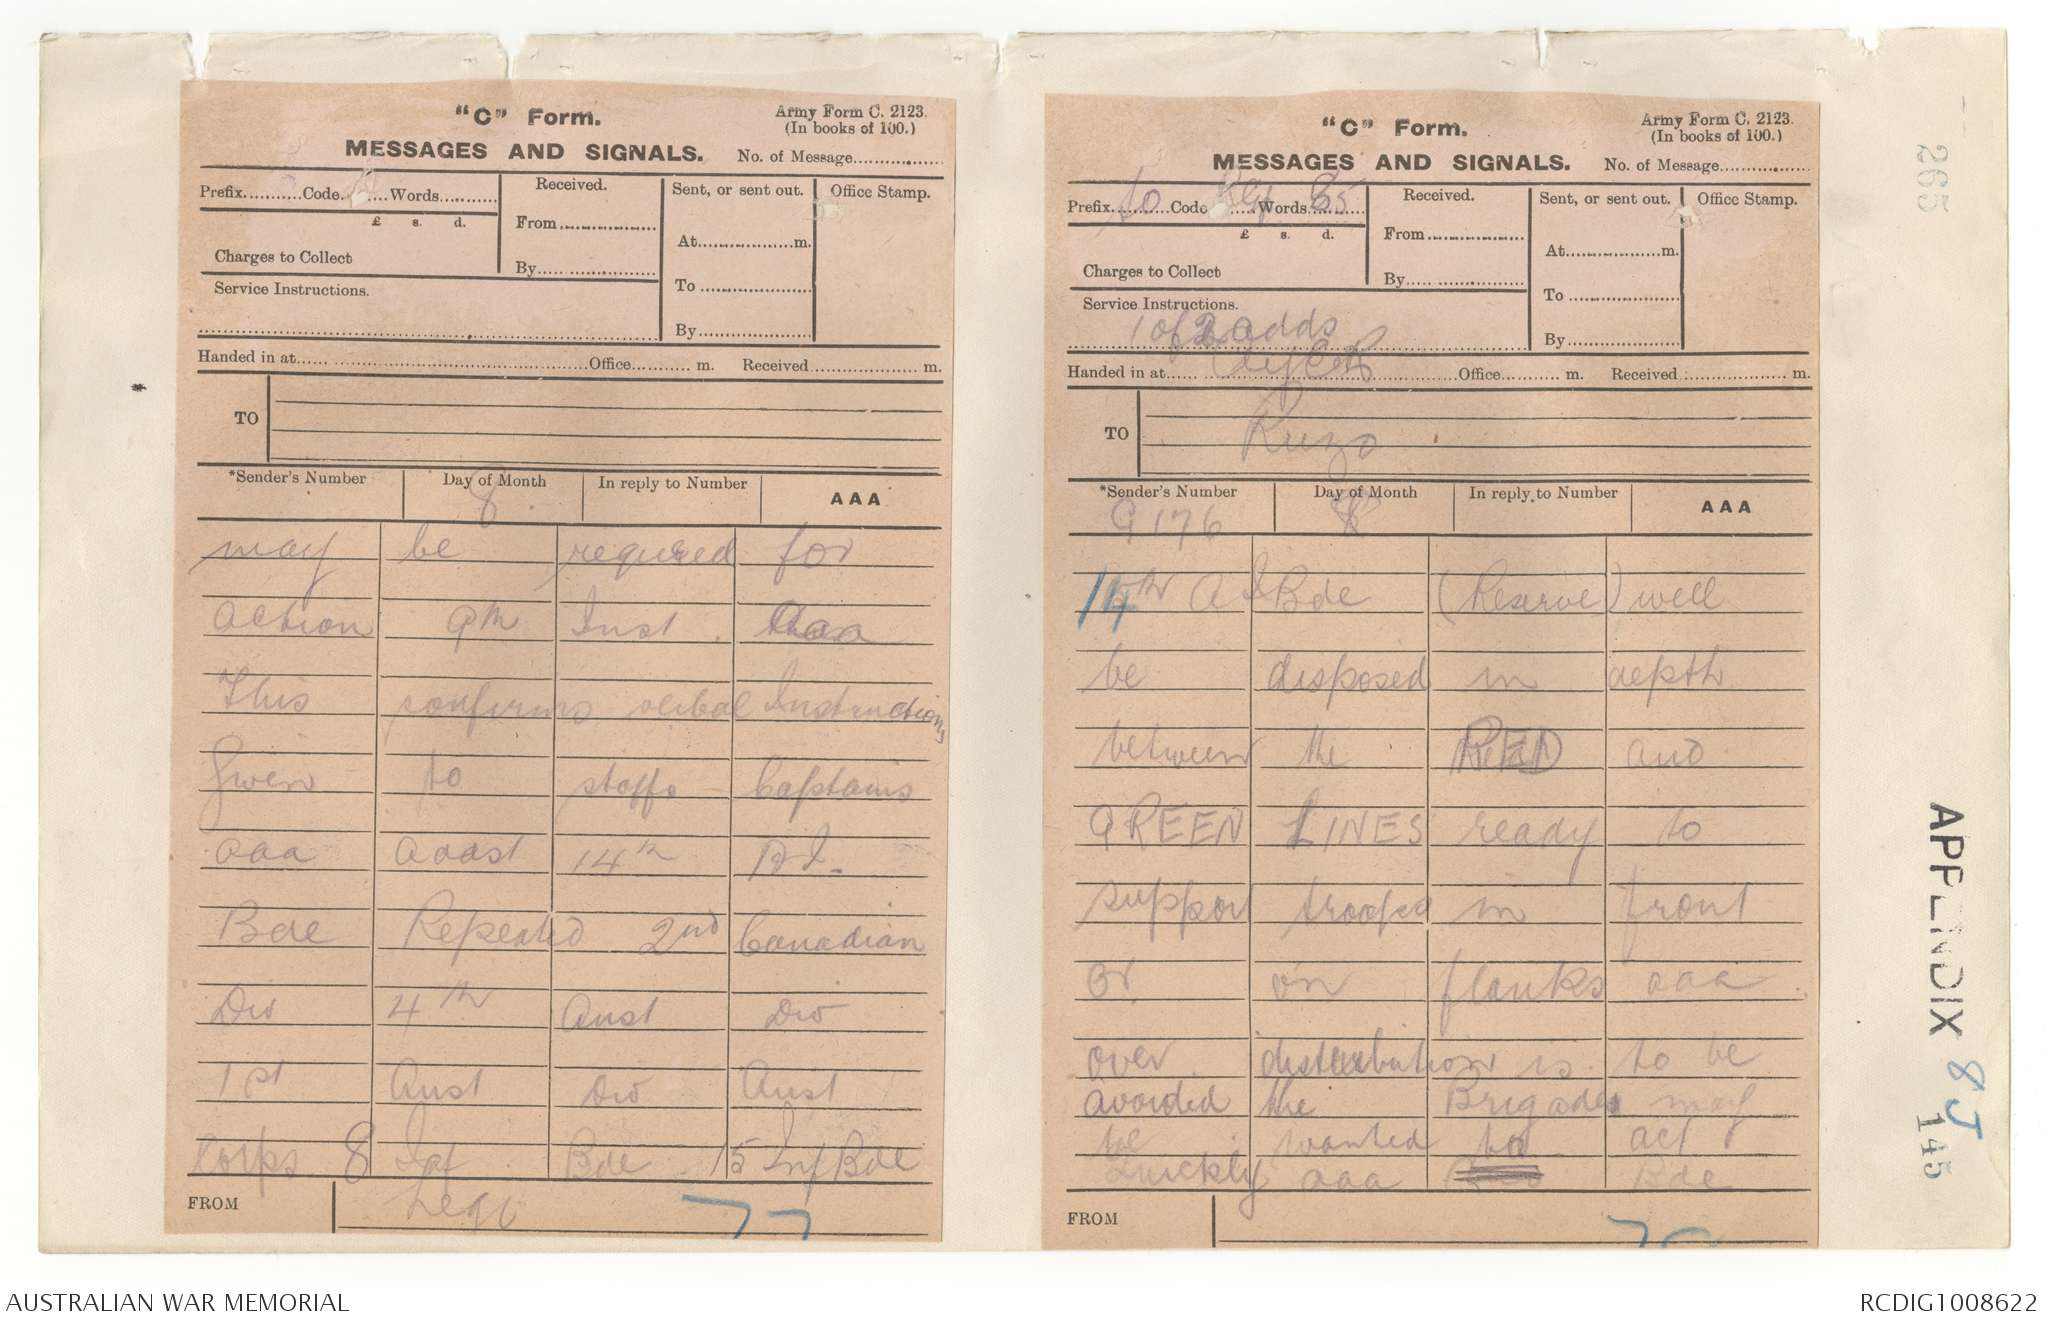 "C" Form.
Army Form C. 2123.
(In books of 100.)
MESSAGES AND SIGNALS.
No. of Message
Prefix Code Words
Received.
Sent, or sent out.
Office Stamp.
£ s. d.
From
At m.
Charges to Collect
By
To
Service Instructions.
By
Handed in at Office m. Received m.
TO
*Sender's Number
Day of Month
In reply to Number
AAA
8
may be required for
action 9th Inst. aaa
This confirms verbal Instructions
given to staff Captains
aaa addst 14th A.I.
Bde Repeated 2nd Canadian
Div 4th Aust Div
1st Aust Div Aust
Corps 8 Inf Bde 15 Inf Bde
FROM
77
"C" Form.
Army Form C. 2123.
(In books of 100.)
MESSAGES AND SIGNALS.
No. of Message
Prefix Code Words
Received.
Sent, or sent out.
Office Stamp.
£ s. d.
From
At m.
Charges to Collect
By
To
Service Instructions.
1 of 2 adds
By
Handed in at Office m. Received m.
TO
Ruzo
*Sender's Number
Day of Month
In reply to Number
AAA
G 176 8
14th A I Bde (Reserve) will
be disposed in depth
between the RED and
GREEN LINES ready to
support troops in front
or on flanks aaa
over distribution is to be
avoided the Brigade may
be wanted to act
Quickly aaa Bde
FROM
265
APPENDIX 8J
145
AUSTRALIAN WAR MEMORIAL
RCDIG1008622